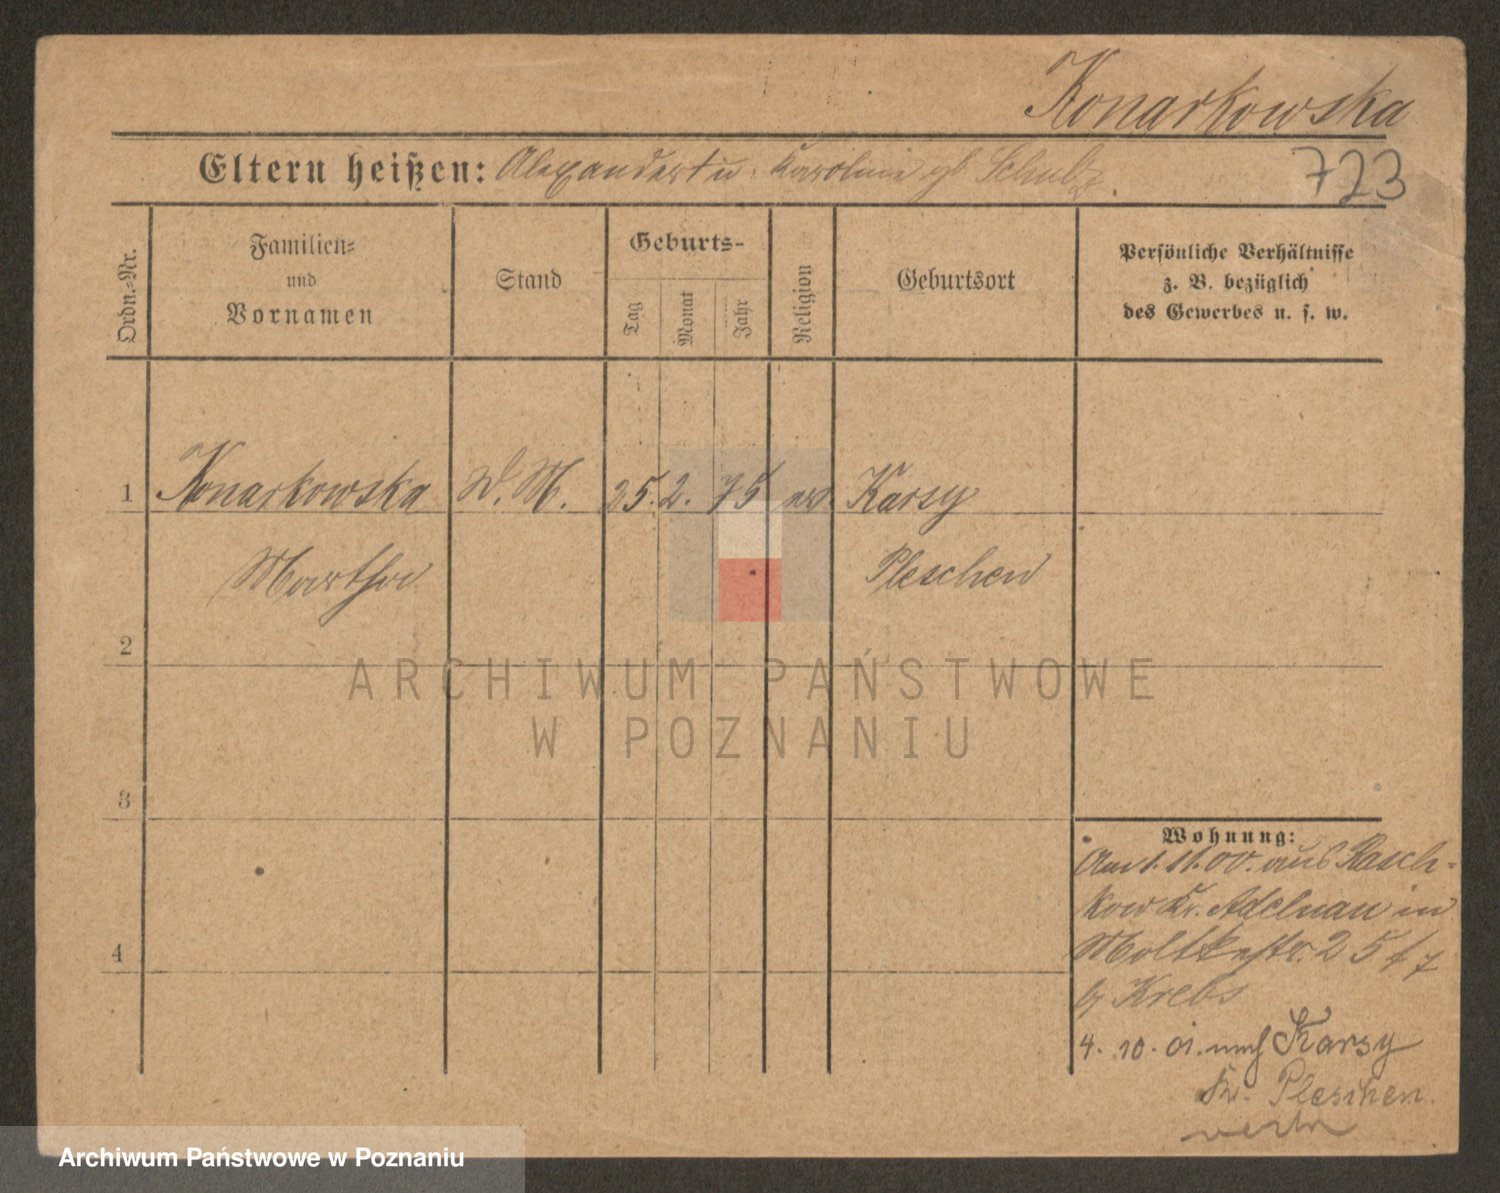 Konarkowska
Eltern heißen: Alexander u. Karoline gb Schulz.
723
Ordn.-Nr.
Familien-
und
Vornamen
Stand
Geburts-
Tag
Monat
Jahr
Religion
Geburtsort
Persönliche Verhältnisse
z. B. bezüglich
des Gewerbes u. s. w.
1 Konarkowska D. M. 25. 2. 75 Karsy
Martha Pleschen
2
ARCHIWUM PAŃSTWOWE
W POZNANIU
3
Wohnung:
Am 1.11.00. aus Rasch-
kow Kr. Adelnau in
Moltkestr. 25
b/ Krebs
4
4. 10. 01. nach Karsy
Kr. Pleschen.
Archiwum Państwowe w Poznaniu